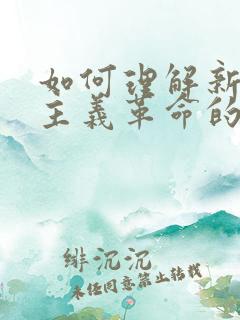 如何理解新
主义革命的
绯沉沉
未经同意禁止转载